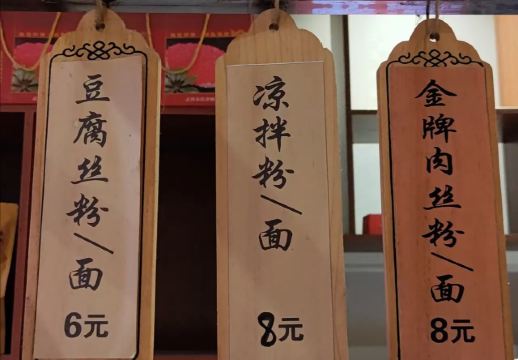 豆腐丝粉/面
6元
凉拌粉/面
8元
金牌肉丝粉/面
8元